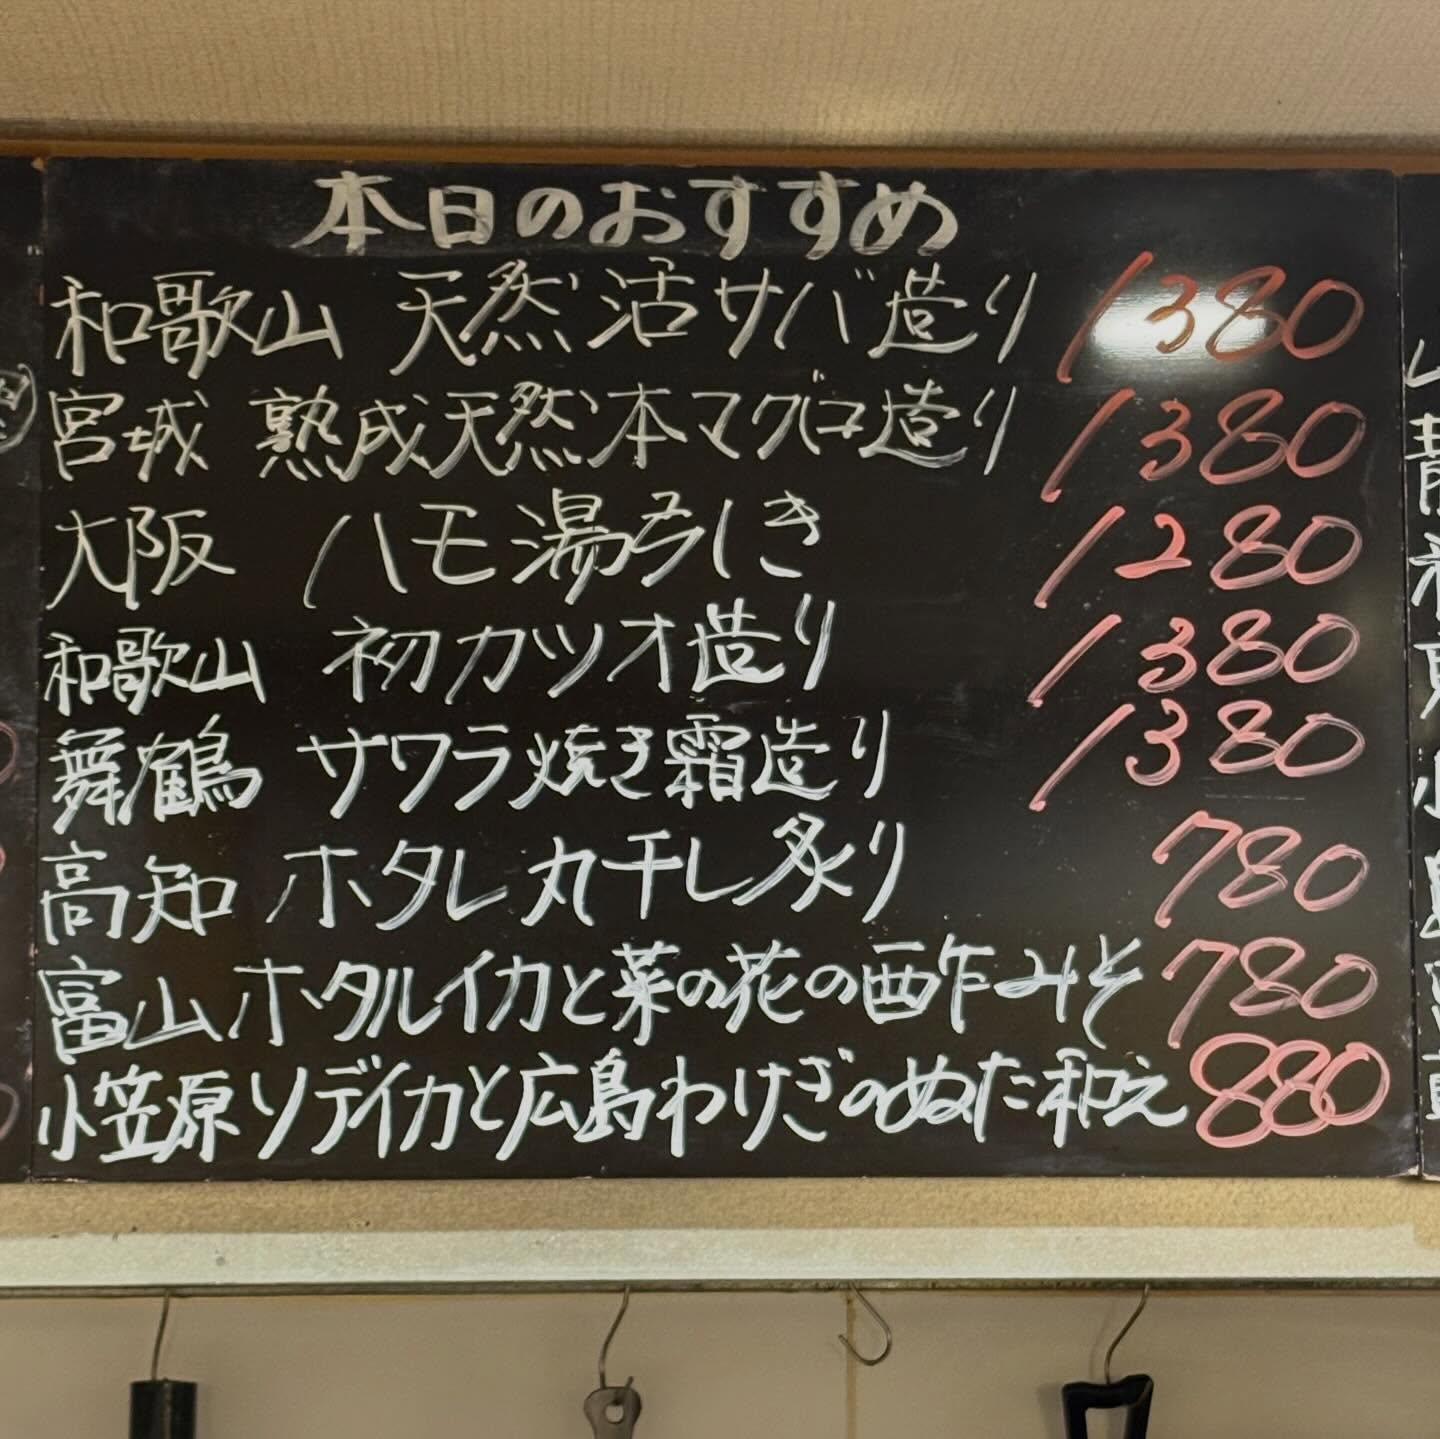 本日のおすすめ
和歌山 天然活サバ造り 1380
宮城 熟成天然本マグロ造り 1380
大阪 ハモ湯引き 1280
和歌山 初カツオ造り 1380
舞鶴 サワラ焼き霜造り 1380
高知 ホタレ丸干し炙り 780
富山 ホタルイカと菜の花の酢みそ 780
小笠原 ソデイカと広島わけぎのぬた和え 880